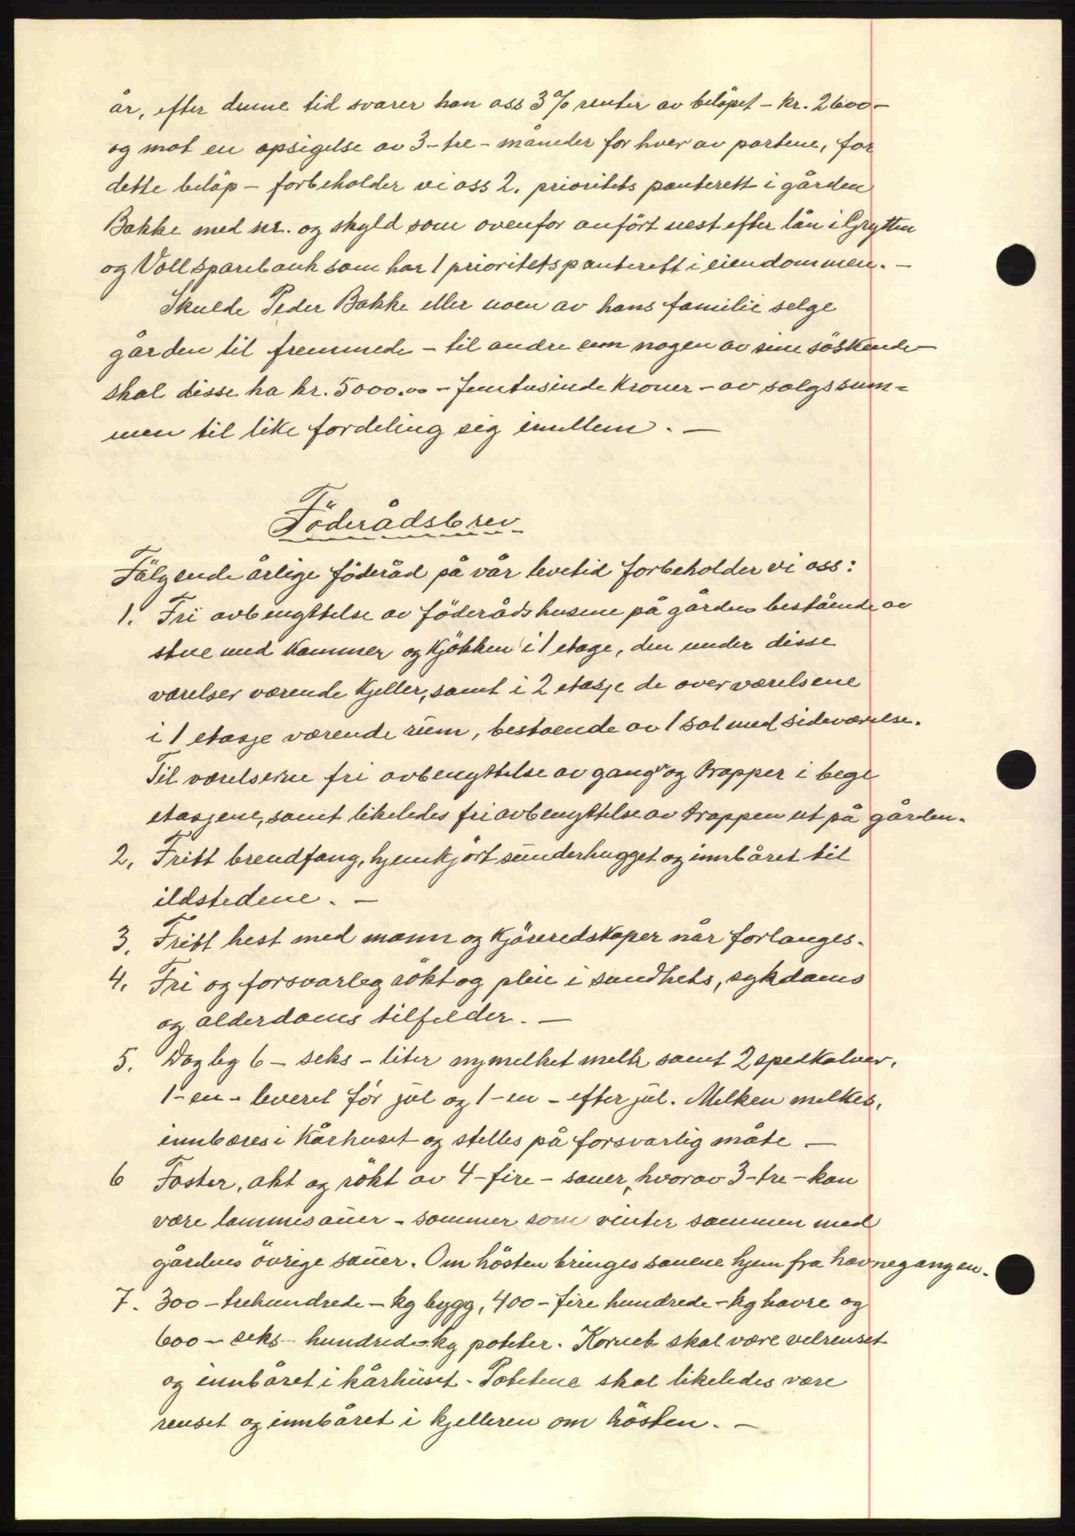 år, efter denne tid svarer han oss 3% renter av beløpet – kr. 2600 –
og mot en opsigelse av 3 – tre – måneder for hver av partene, for
dette beløp – forbeholder vi oss 2. prioritets panterett i gården
Bakke med nr. og skyld som ovenfor anført nest efter lån i Grytten
og Voll sparebank som har 1 prioritets panterett i eiendommen. –
Skulde Peder Bakke eller noen av hans familie selge
gården til fremmede – til andre enn nogen av sine söskende –
skal disse ha kr. 5000.00 – femtusinde Kroner – av salgssum=
men til like fordeling sig imellem. –
Föderådsbrev
Fölgende årlige föderåd på vår levetid forbeholder vi oss:
1. Fri avbenyttelse av föderådshusene på gården bestående av
stue med kammer og kjökken i 1 etage, den under disse
værelser værende kjeller, samt i 2 etasje de over værelsene
i 1 etasje værende rüm, bestaaende av 1 sal med sideværelse.
Til værelserne fri avbenyttelse av gang og trapper i bege
etasjene, samt likeledes fri avbenyttelse av trappen ut på gården.
2. Fritt brendfang, hjemkjört sünderhugget og innbåret til
ildstedene. –
3. Fritt hest med mann og kjöreredskaper når forlanges.
4. Fri og forsvarleg rökt og pleie i sundhets, sykdoms
og alderdoms tilfelder. –
5. Dagleg 6 – seks – liter nymelket melk samt 2 spedkalver,
1 – en – leveret för jül og 1 – en – efter jül. Melken melkes,
innbæres i Kårhuset og stelles på forsvarlig måte –
6 Foster, akt og rökt av 4 – fire – sauer, hvorav 3 – tre – kan
være lammesauer – sommer som vinter sammen med
gårdens övrige sauer. Om hösten bringes sauene hjem fra havnegangen.
7. 300 – trehundrede – kg bygg, 400 – fire hundrede – kg havre og
600 – seks hundrede – kg poteter. Kornet skal være velrenset
og innbåret i kårhüset. Potetene skal likeledes være
renset og innbåret i kjelleren om hösten. –